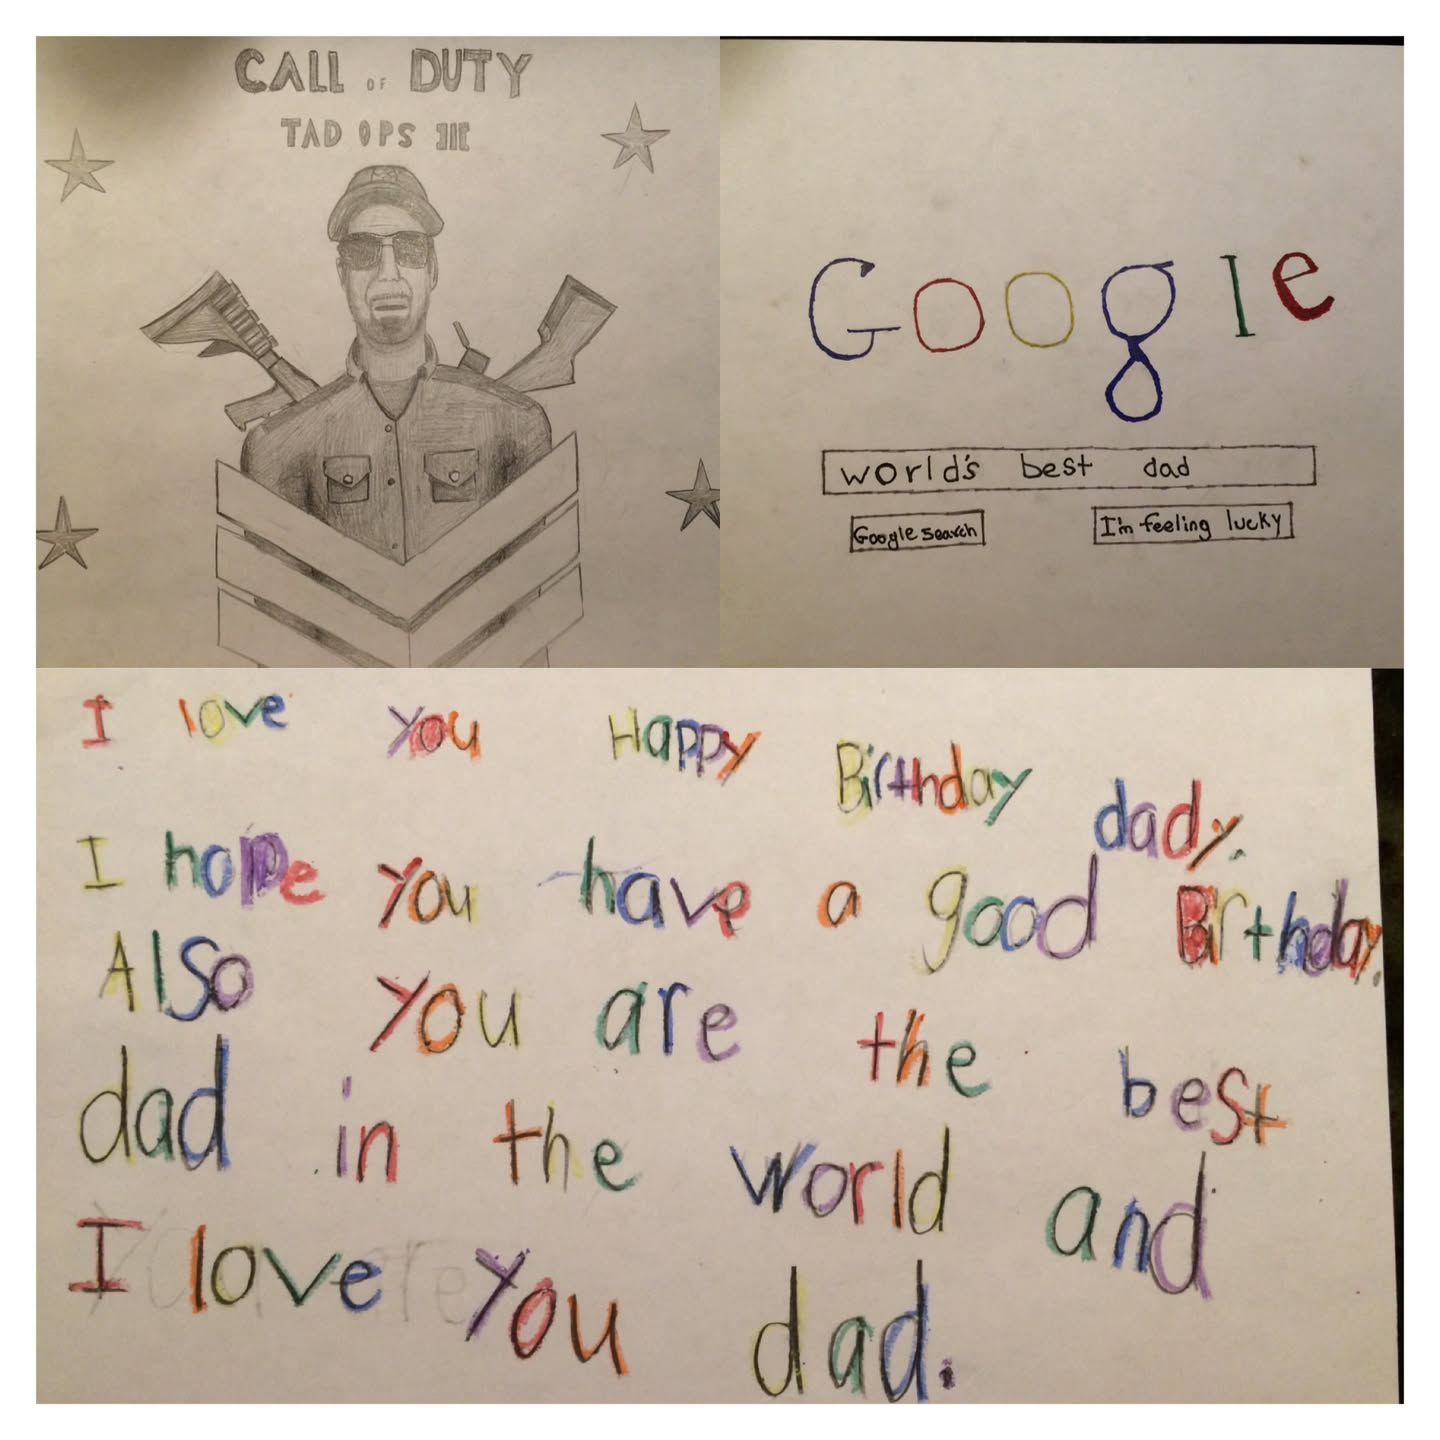 CALL OF DUTY
TAD OPS III
Google
world's best dad
Google search
I'm feeling lucky
I love you Happy Birthday dady.
I hope you have a good Birthday.
Also you are the best
dad in the world and
I love you dad.